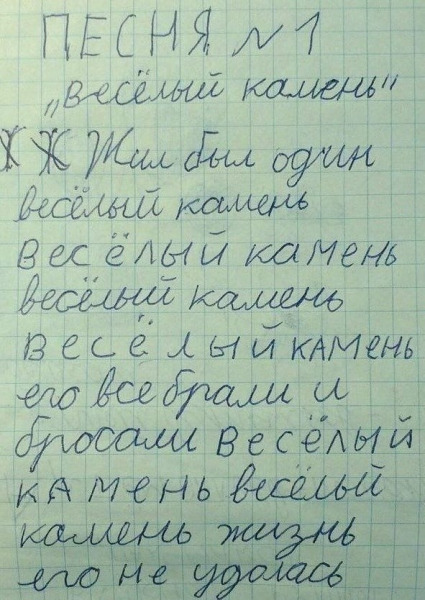 ПЕСНЯ №1
„Весёлый камень"
Ж Ж Жил был один
весёлый камень
весёлый камень
весёлый камень
весёлый камень
его все брали и
бросали весёлый
камень весёлый
камень жизнь
его не удолась